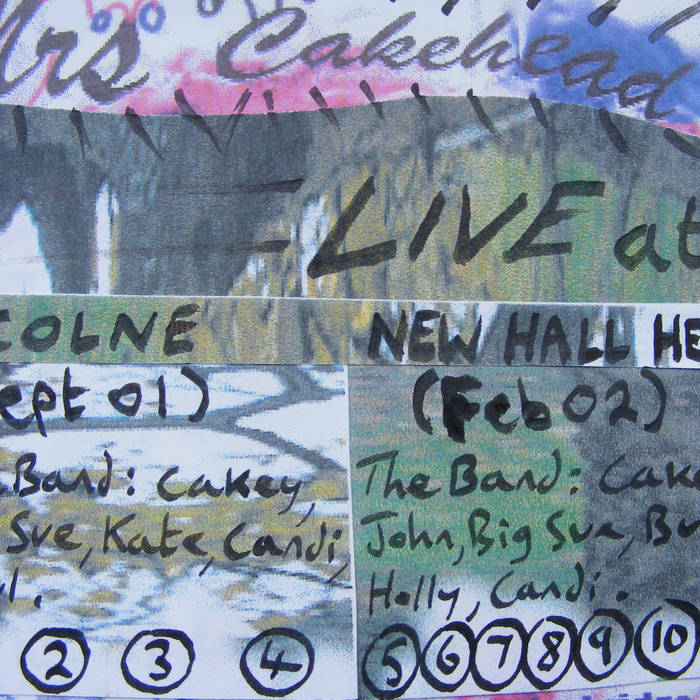 Mrs Cakehead
LIVE at
COLNE
NEW HALL HE
ept 01)
(Feb 02)
Band: Cakey,
Sue, Kate, Candi,
l.
The Band: Cake
John, Big Sue, Bu
Holly, Candi.
2 3 4
5 6 7 8 9 10